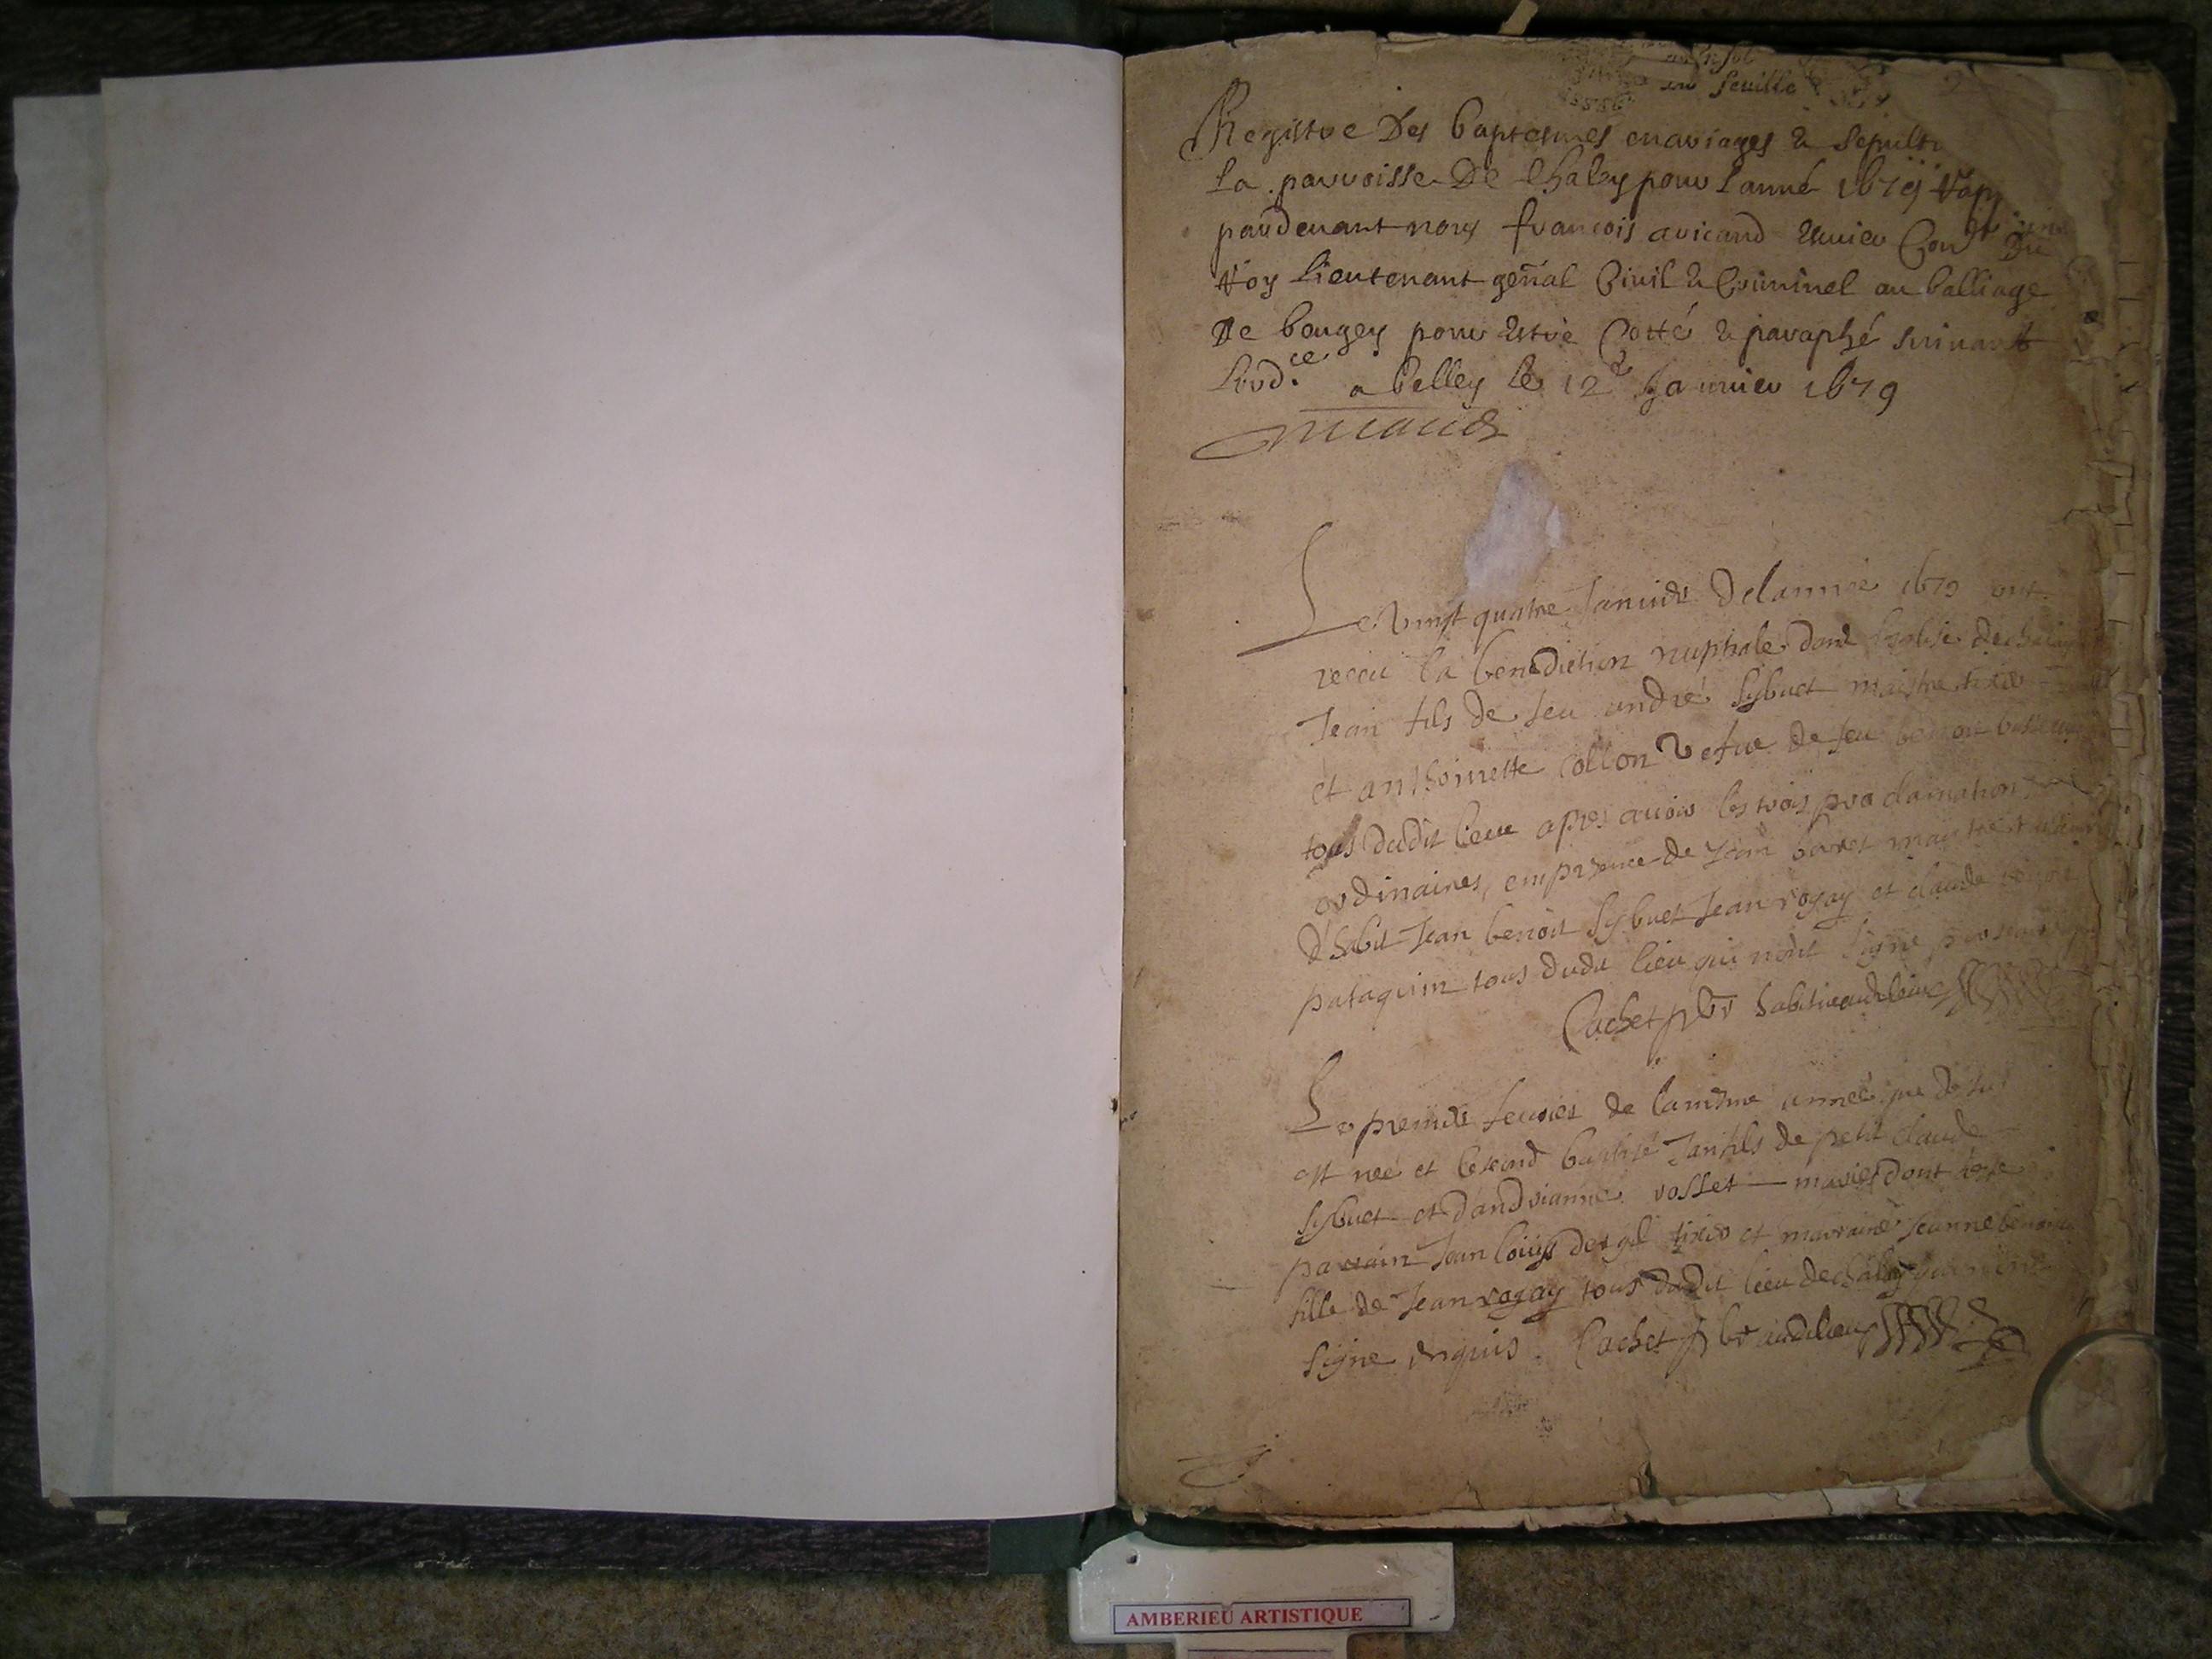 un feuille
Registre Des baptesmes mariages & sepultu
La parroisse De Chaley pour lanné 1679
pardevant nous francois avicand Conr Du
Roy Lieutenant genal Civil & Criminel au balliage
De beugey pour estre Cotté & paraphé suivant
Lord.ce a belley le 12e Janvier 1679
Le vingt quatre Janvier De lannée 1679 ont
receu la benediction nuptiale dans leglise de chaley
Jean fils de feu andré sybuet maistre tixier
et anthoinette collon vefve de feu benoit
tous dudit lieu apres avoir les trois proclamation
ordinaires, en presence de Jean
d'habit Jean benoit sybuet Jean rogay et claude
pataquin tous dudit lieu qui nont signé
Cachet pbr habitué audit lieu
Le premier fevrier de la mesme année que dessus
est neé et le second baptisé Jan fils de petit claude
sybuet et dandrianne rosset mariés dont
parrain Jean louys tixier et marraine Jeanne benoite
fille de Jean rogay tous dudit lieu de chaley qui nont
signe enquis. Cachet pbr audit lieu
AMBERIEU ARTISTIQUE